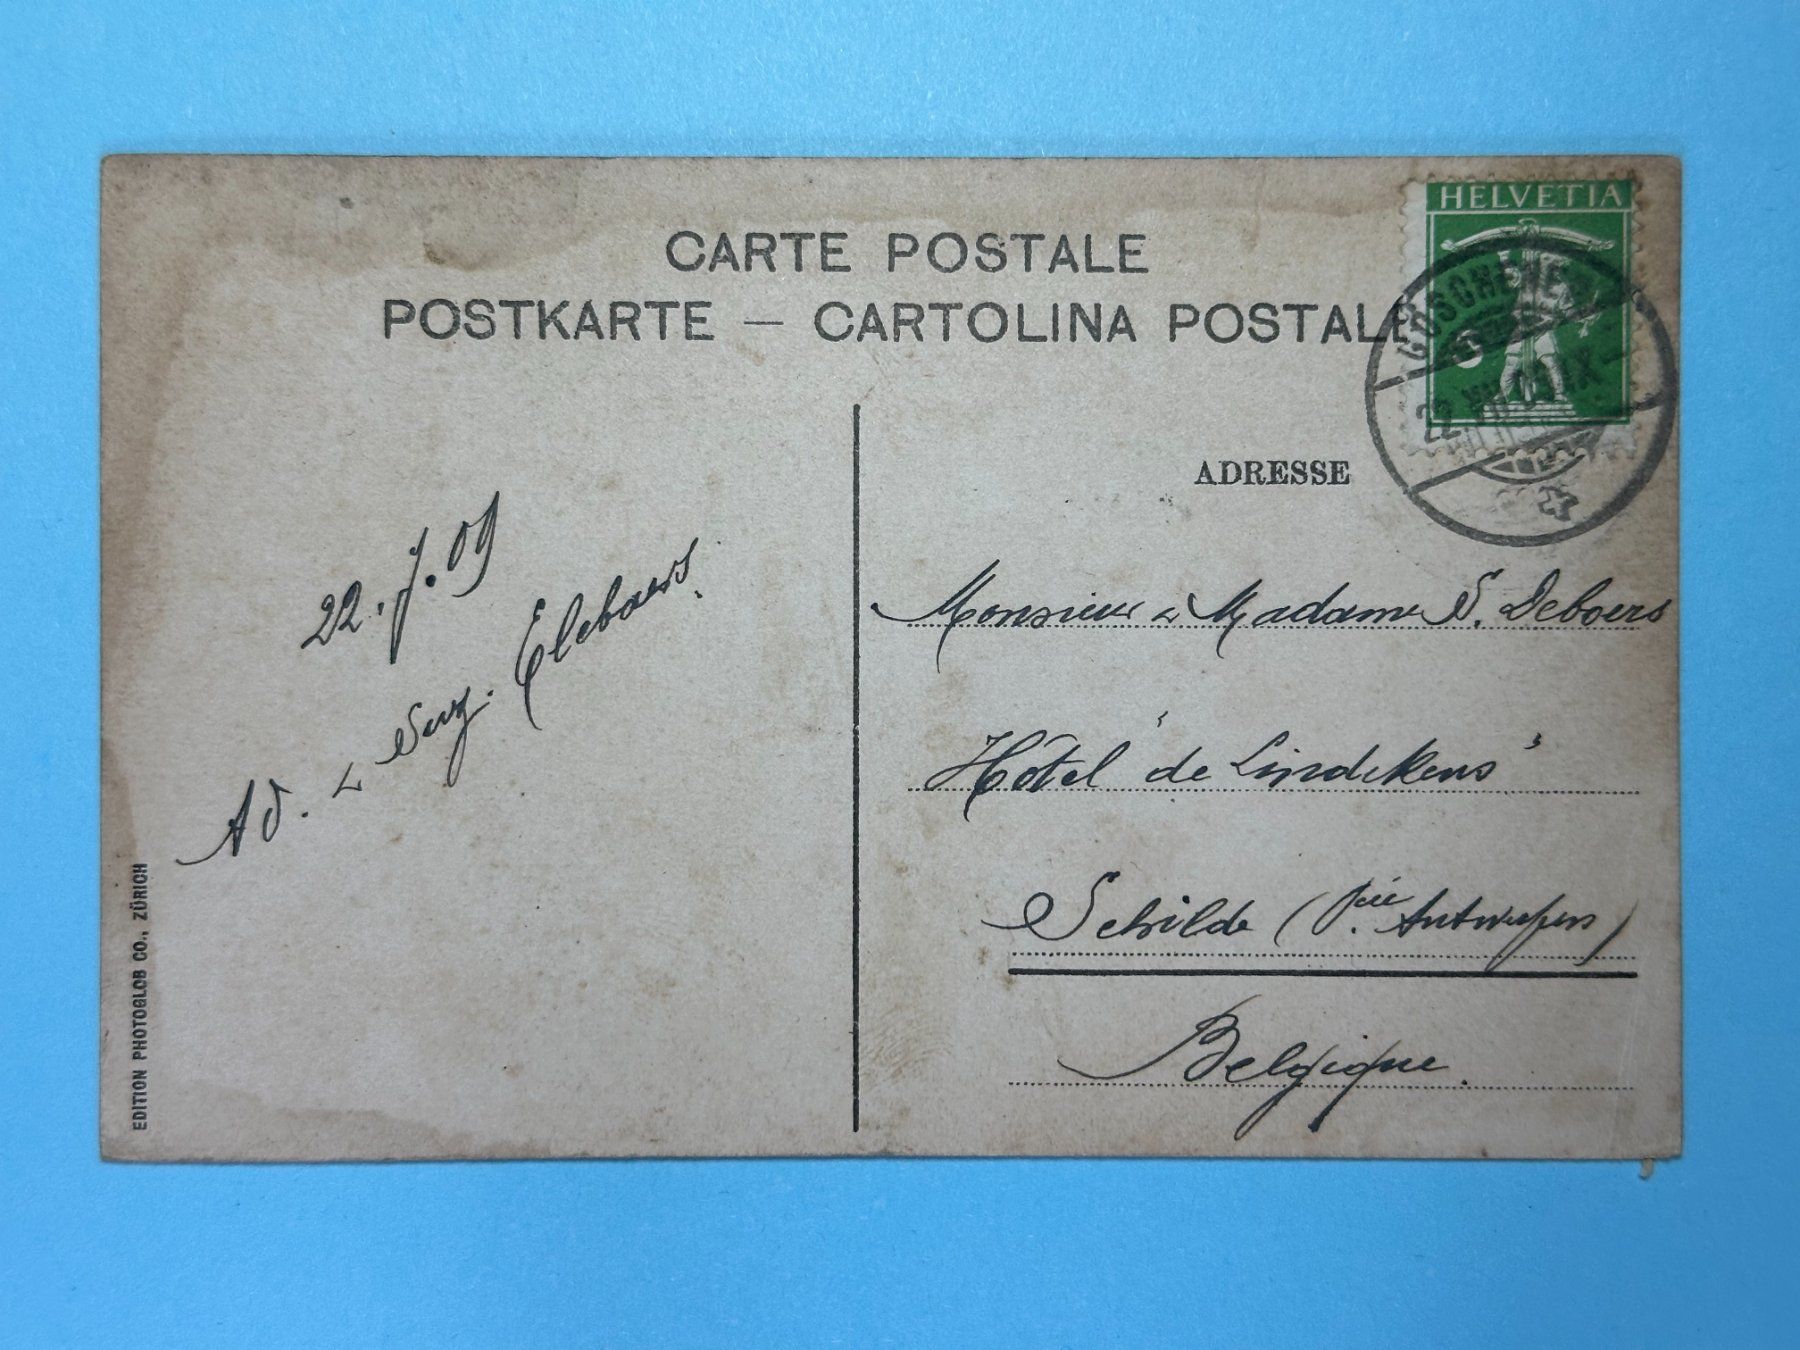 CARTE POSTALE
POSTKARTE — CARTOLINA POSTALE
HELVETIA
5
GÖSCHENEN
22. VII. 09. IX –
ADRESSE
22.7.09
Ad. & Suz. Elebaers.
Monsieur & Madame S. Deboers
Hôtel "de Lindekens"
Schilde (P.cie Antwerpen)
Belgique.
EDITION PHOTOGLOB CO., ZÜRICH